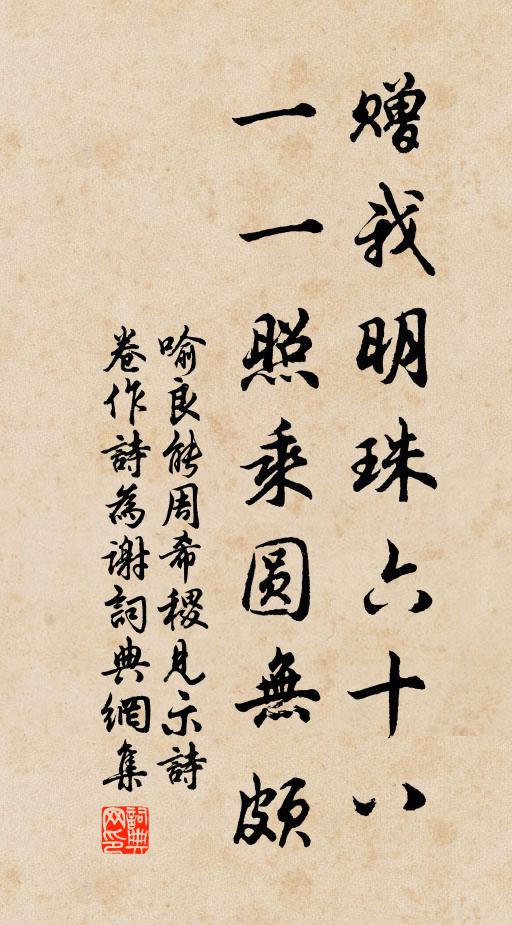 赠我明珠六十八
一一照乘圆無颇
喻良能周希稷見示詩
卷作詩為谢詞典網集
詞典网印